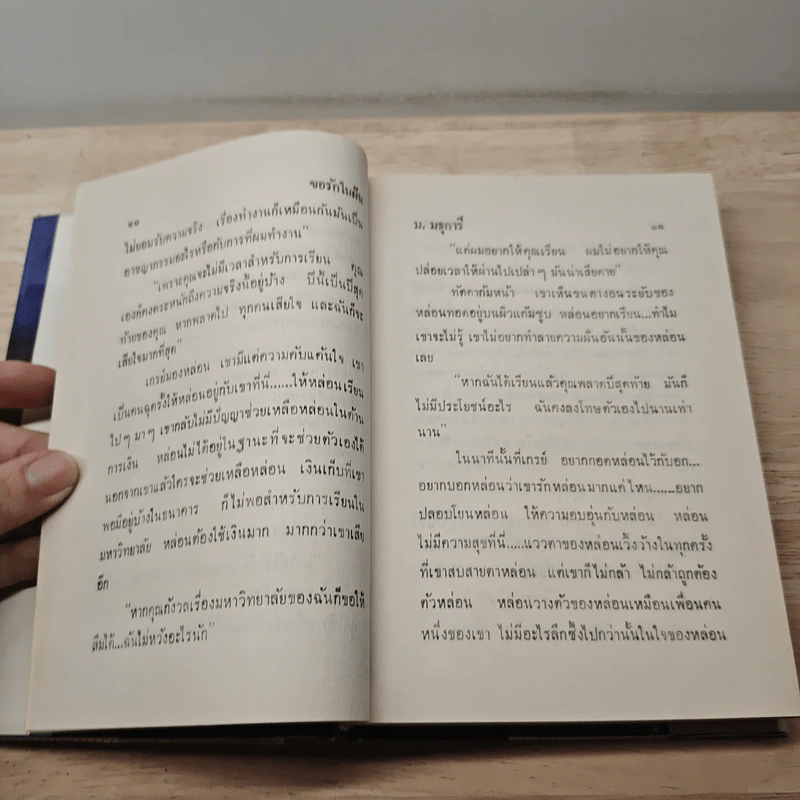 ๑๐
ขอรักในฝัน
ไม่ยอมรับความจริง เรื่องทำงานก็เหมือนกันมันเป็น
อาชญากรรมอะไรหรือกับการที่ผมทำงาน”
“เพราะคุณจะไม่มีเวลาสำหรับการเรียน คุณ
เองก็คงตระหนักถึงความจริงนี้อยู่บ้าง ปีนี้เป็นปีสุด
ท้ายของคุณ หากพลาดไป ทุกคนเสียใจ และฉันก็จะ
เสียใจมากที่สุด”
เกรย์มองหล่อน เขามีแต่ความคับแค้นใจ เขา
เป็นคนฉุดรั้งให้หล่อนอยู่กับเขาที่นี่......ให้หล่อนเรียน
ไปๆ มาๆ เขากลับไม่มีปัญญาช่วยเหลือหล่อนในด้าน
การเงิน หล่อนไม่ได้อยู่ในฐานะที่จะช่วยตัวเองได้
นอกจากเขาแล้วใครจะช่วยเหลือหล่อน เงินเก็บที่เขา
พอมีอยู่บ้างในธนาคาร ก็ไม่พอสำหรับการเรียนใน
มหาวิทยาลัย หล่อนต้องใช้เงินมาก มากกว่าเขาเสีย
อีก
“หากคุณกังวลเรื่องมหาวิทยาลัยของฉันก็ขอให้
ลืมได้...ฉันไม่หวังอะไรนัก”
ม. มธุการี
๑๑
“แต่ผมอยากให้คุณเรียน ผมไม่อยากให้คุณ
ปล่อยเวลาให้ผ่านไปเปล่าๆ มันน่าเสียดาย”
ทัตตาก้มหน้า เขาเห็นขนตางอนระยับของ
หล่อนทอดอยู่บนผิวแก้มซูบ หล่อนอยากเรียน...ทำไม
เขาจะไม่รู้ เขาไม่อยากทำลายความฝันอันนั้นของหล่อน
เลย
“หากฉันได้เรียนแล้วคุณพลาดปีสุดท้าย มันก็
ไม่มีประโยชน์อะไร ฉันคงลงโทษตัวเองไปนานเท่า
นาน”
ในนาทีนั้นที่เกรย์ อยากกอดหล่อนไว้กับอก...
อยากบอกหล่อนว่าเขารักหล่อนมากแค่ไหน......อยาก
ปลอบโยนหล่อน ให้ความอบอุ่นกับหล่อน หล่อน
ไม่มีความสุขที่นี่.....แววตาของหล่อนเวิ้งว้างในทุกครั้ง
ที่เขาสบสายตาหล่อน แต่เขาก็ไม่กล้า ไม่กล้าถูกต้อง
ตัวหล่อน หล่อนวางตัวของหล่อนเหมือนเพื่อนคน
หนึ่งของเขา ไม่มีอะไรลึกซึ้งไปกว่านั้นในใจของหล่อน